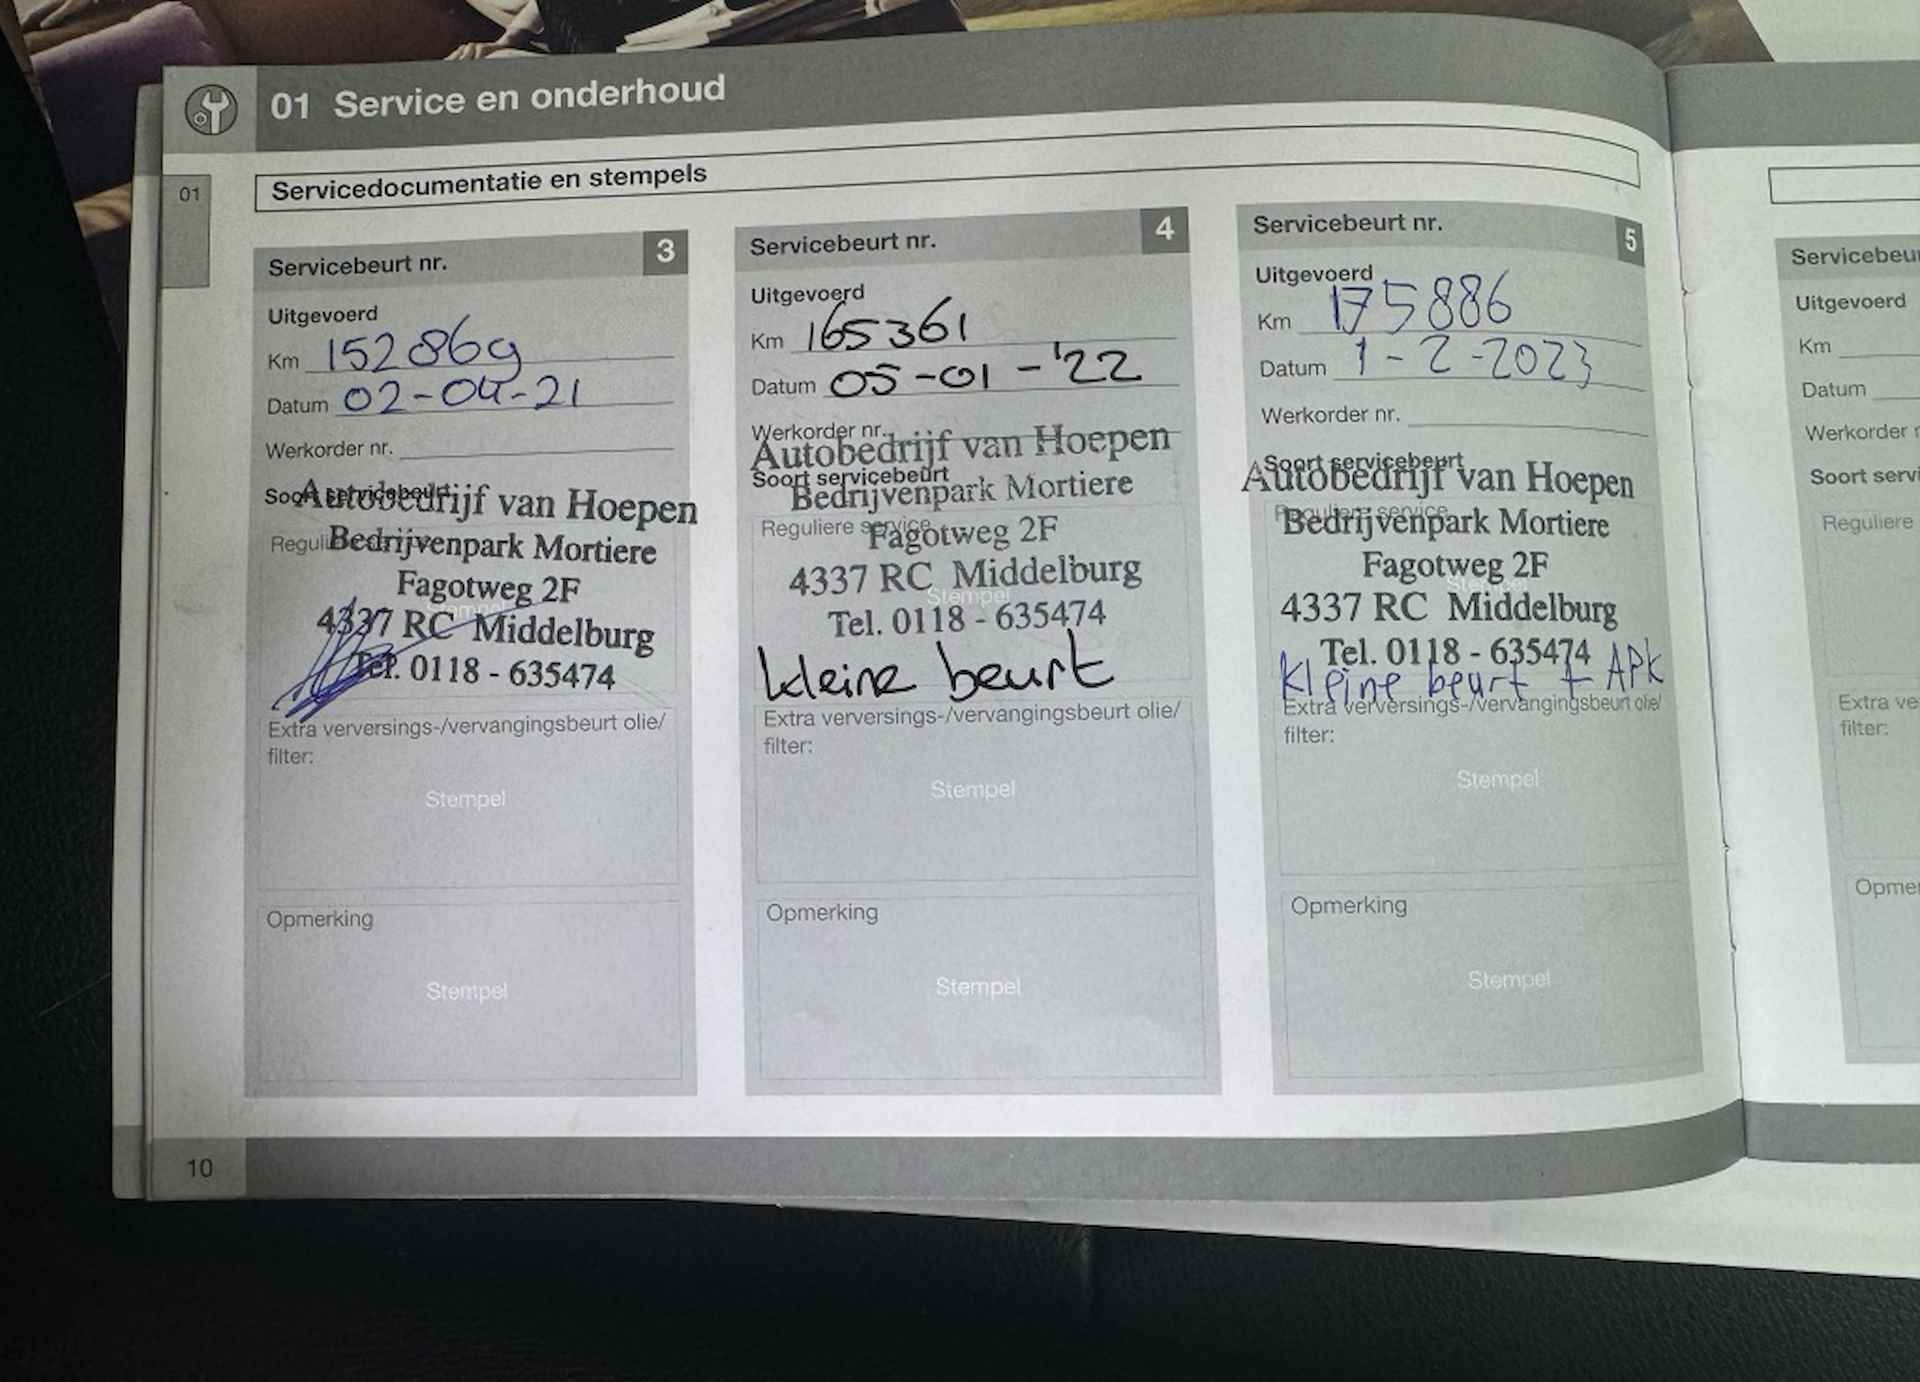 01 Service en onderhoud
01
Servicedocumentatie en stempels
Servicebeurt nr. 3
Uitgevoerd
Km 152869
Datum 02-04-21
Werkorder nr.
Soort servicebeurt
Autobedrijf van Hoepen
Reguliere service
Bedrijvenpark Mortiere
Fagotweg 2F
Stempel
4337 RC Middelburg
Tel. 0118 - 635474
Extra verversings-/vervangingsbeurt olie/
filter:
Stempel
Opmerking
Stempel
Servicebeurt nr. 4
Uitgevoerd
Km 165361
Datum 05-01-'22
Werkorder nr.
Autobedrijf van Hoepen
Soort servicebeurt
Bedrijvenpark Mortiere
Reguliere service
Fagotweg 2F
4337 RC Middelburg
Stempel
Tel. 0118 - 635474
kleine beurt
Extra verversings-/vervangingsbeurt olie/
filter:
Stempel
Opmerking
Stempel
Servicebeurt nr. 5
Uitgevoerd
Km 175886
Datum 1-2-2023
Werkorder nr.
Soort servicebeurt
Autobedrijf van Hoepen
Reguliere service
Bedrijvenpark Mortiere
Fagotweg 2F
Stempel
4337 RC Middelburg
Tel. 0118 - 635474
Kleine beurt + APK
Extra verversings-/vervangingsbeurt olie/
filter:
Stempel
Opmerking
Stempel
Uitgevoerd
Km
Datum
Werkorder
Soort
Reguliere
Extra
filter:
10